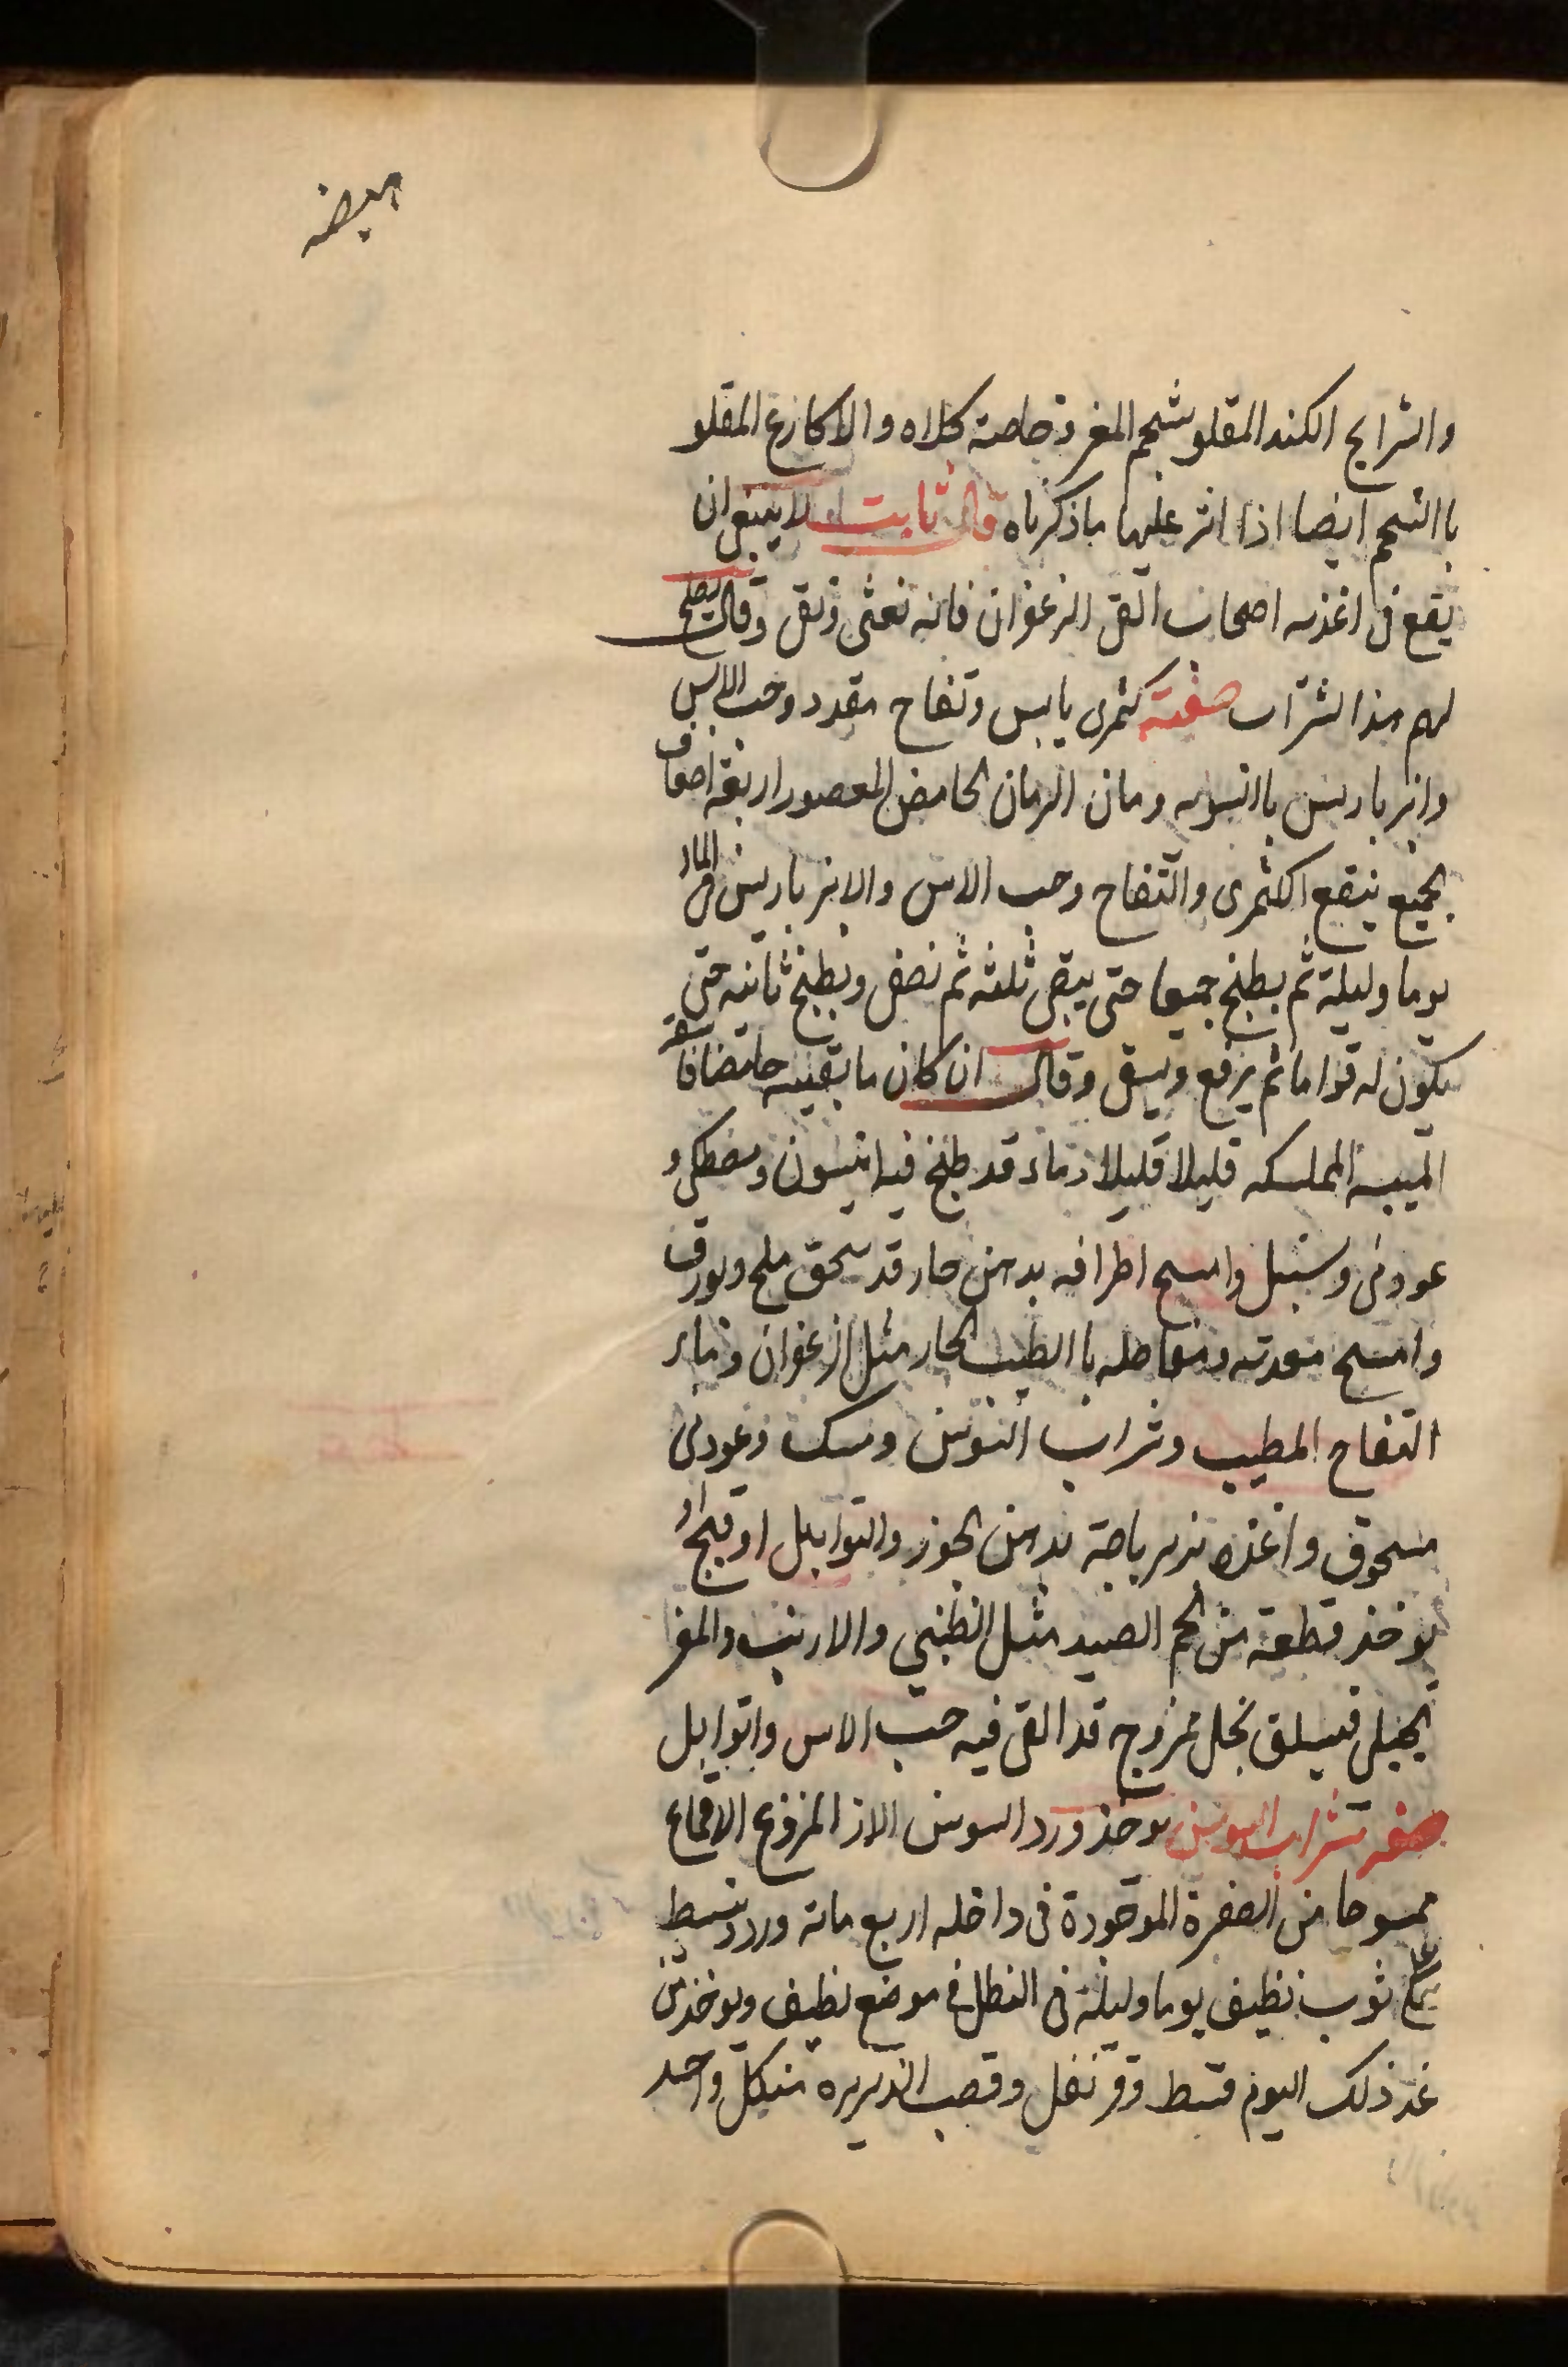 الهيضه
والشرايح الكند المقلو بشحم المغر وخاصة كلاه والاكارع المقلو
باالشحم ايضا اذا انثر عليها ماذكرناه قال ثابت لا ينبغي ان
يقع في اغذيه اصحاب القي الزعفران فانه يغثي ويقي وقال يصلح
لهم هذا الشراب صفته كمثرى يابس وتفاح مقدد وحب الاس
وانبرباريس باالسويه ومان الرمان الحامض المعصور اربعة اضعاف
الجميع ينقع الكثمرى والتفاح وحب الاس والانبرباريس في الماء
يوما وليلة ثم يطبخ جميعا حتى يبقى ثلثه ثم يصفى ويطبخ ثانيه حتى
يكون له قواما ثم يرفع ويسقى وقال ان كان ما يقيئه حامضا فاسقه
الميبه الممسكه قليلا قليلا وماء قد طبخ فيه انيسون ومصطكى و
عود ني وسنبل وامسح اطرافه بدهن حار قد سحق ملح وبورق
وامسح معدته ومفاصله باالطيب الحار مثل الزعفران وماء
التفاح المطيب وشراب السوسن ومسك وعود ني
مسحوق واغذه بزيرباجة بدهن الجوز والتوابل او قبج او
يوخذ قطعة من لحم الصيد مثل الظبي والارنب والمغر
الجبلي فيسلق بخل ممزوج قد القى فيه حب الاس واتوابل
صفه شراب السوسن يوخذ ورد السوسن الازاد المنزوع الاقماع
ممسوحا من الصفرة الموجودة في داخله اربع مائه ورده تبسط
على ثوب نظيف يوما وليلة في الظل في موضع نظيف ويوخذ من
غد ذلك اليوم قسط وقرنفل وقصب الذريره من كل واحد